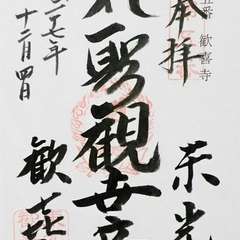 五番 歓喜寺
奉拝
東光
聖観世音
二十七年
十二月四日
歓喜